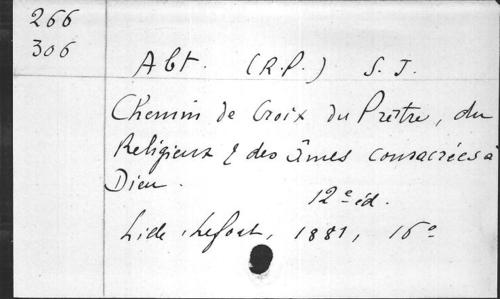 266
306
Abt. (R.P.) S. J.
Chemin de Croix du Prêtre, du
Religieux & des Âmes consacrées à
Dieu.
12e éd.
Lille, Lefort, 1881, 16o